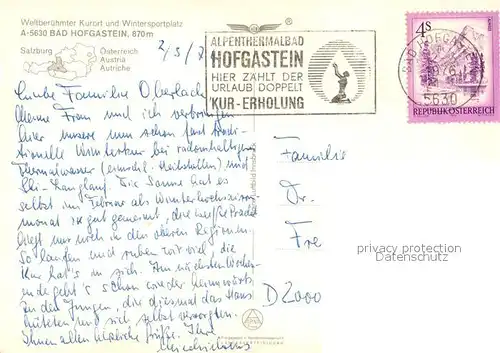 Weltberühmter Kurort und Wintersportplatz
A-5630 BAD HOFGASTEIN, 870m
Salzburg
Österreich
Austria
Autriche
2/3/7
ALPENTHERMALBAD
HOFGASTEIN
HIER ZÄHLT DER
URLAUB DOPPELT
KUR-ERHOLUNG
BAD HOFGASTEIN
5630
4S
REPUBLIK ÖSTERREICH
Liebe Familie Oberlach
meine Frau und ich verbringen
hier unsere nun schon fast tradi-
tionelle Winterkur bei radonhaltigem
Thermalwasser (einschl. Heilstollen) und
Ski-Langlauf. Die Sonne hat es
selbst im Februar als
monat zu gut gemeint, die weiße Pracht
liegt nur noch in den oberen Regionen.
So laufen und ruhen wir viel, die
Kur hat's in sich. Am nächsten Wochen-
ende geht's schon wieder heimwärts
zu den Jungen, die diesmal das Haus
hüteten und sich selbst versorgten.
Ihnen allen herzliche Grüße. Ihre
Familie
Dr.
Fre
D 2000
privacy protection
Datenschutz